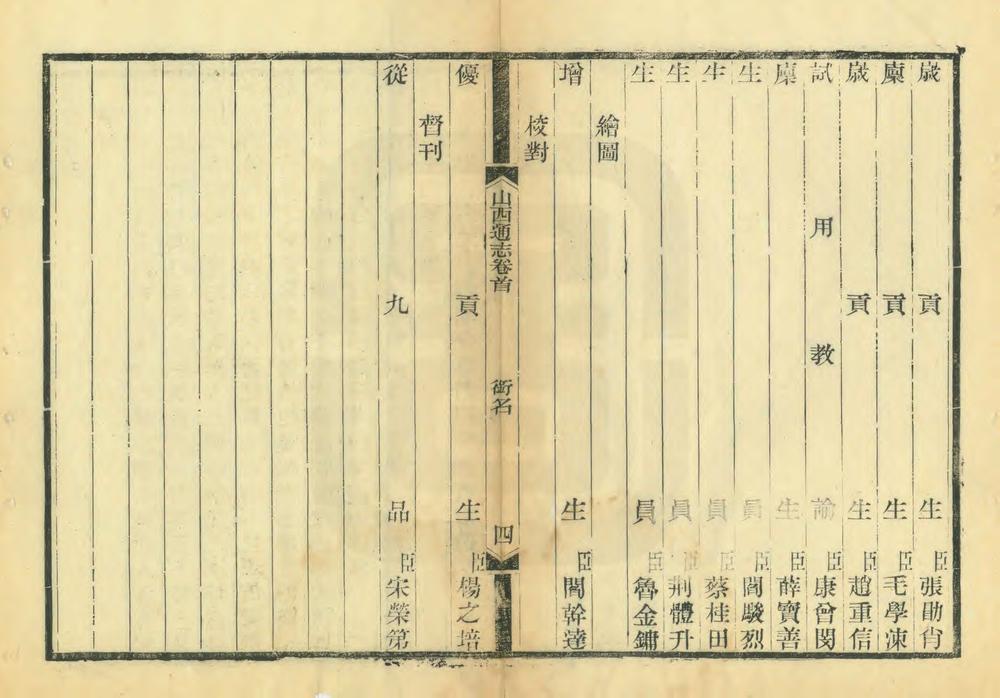 歲貢生臣張勛肯
廪貢生臣毛學涑
歲貢生臣趙重信
試用教諭臣康曾閔
廪生臣薛寶善
生員臣閻駿烈
生員臣蔡桂田
生員臣荆體升
生員臣魯金鏞
繪圖
增生臣閻幹達
校對
山西通志卷首 銜名 四
優貢生臣楊之培
督刊
從九品臣宋榮第